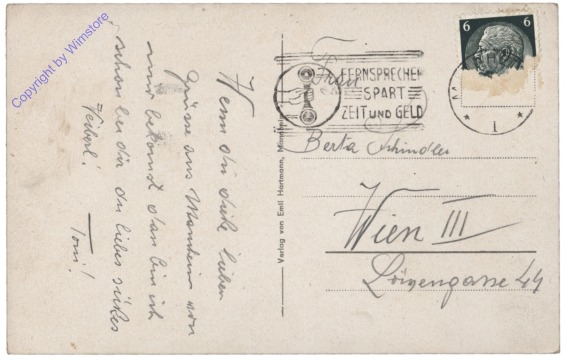 Copyright by Wimstore
Wenn du diese lieben
Grüsse aus Mannheim von
mir bekomst dan bin ich
schon bei dir du liebes süßes
Weiberl!
Toni!
Verlag von Emil Hartmann, Mannheim
6 6
FERNSPRECHEN
SPART
ZEIT UND GELD
1
Frau
Berta Schindler
Wien III
Löwengasse 44